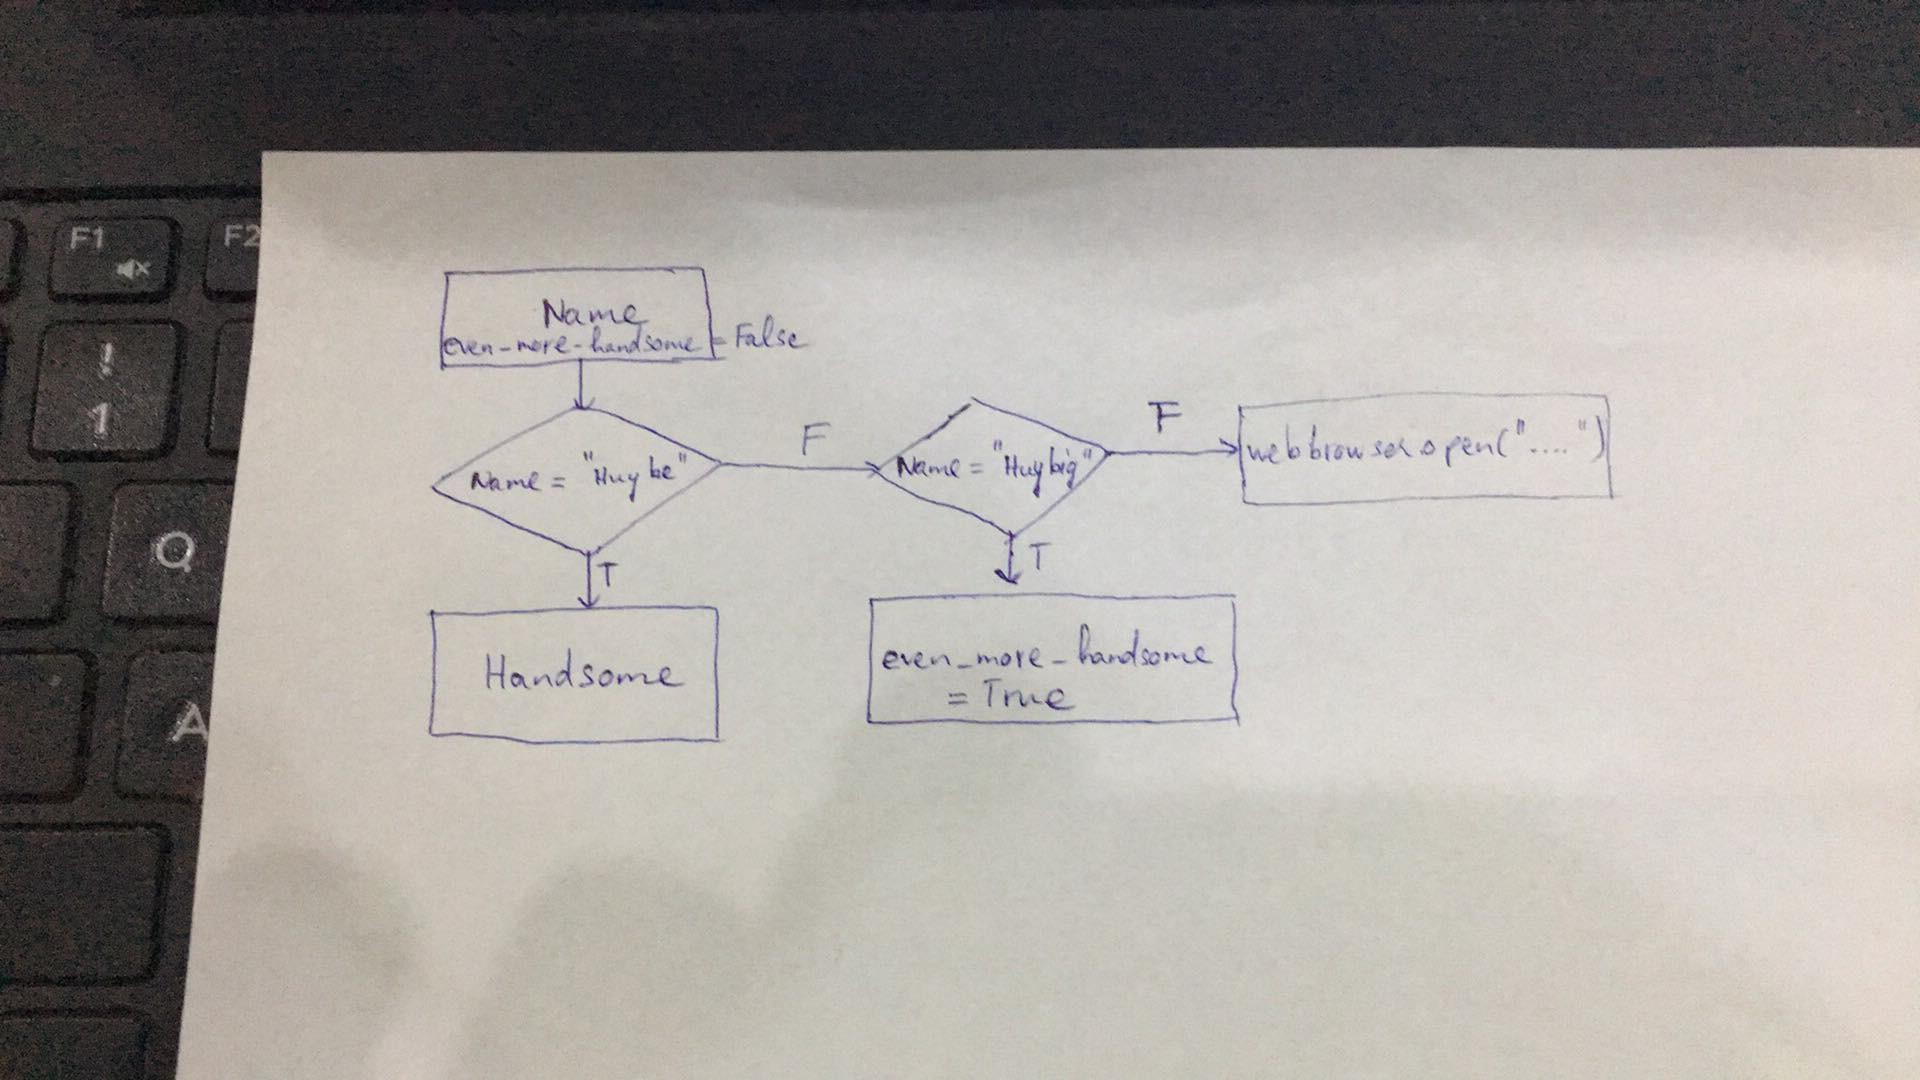 F1
F2
!
1
Q
A
Name
even_more_handsome = False
Name = "Huy be"
F
Name = "Huy big"
F
webbrowser.open("....")
T
T
Handsome
even_more_handsome
= True